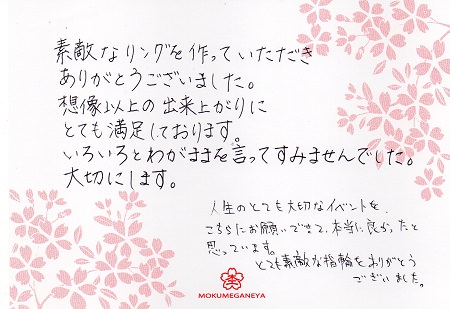 素敵なリングを作っていただき
ありがとうございました。
想像以上の出来上がりに
とても満足しております。
いろいろとわがままを言ってすみませんでした。
大切にします。
人生のとても大切なイベントを、
こちらにお願いできて、本当に良かったと
思っています。
とても素敵な指輪をありがとう
ございました。
MOKUMEGANEYA